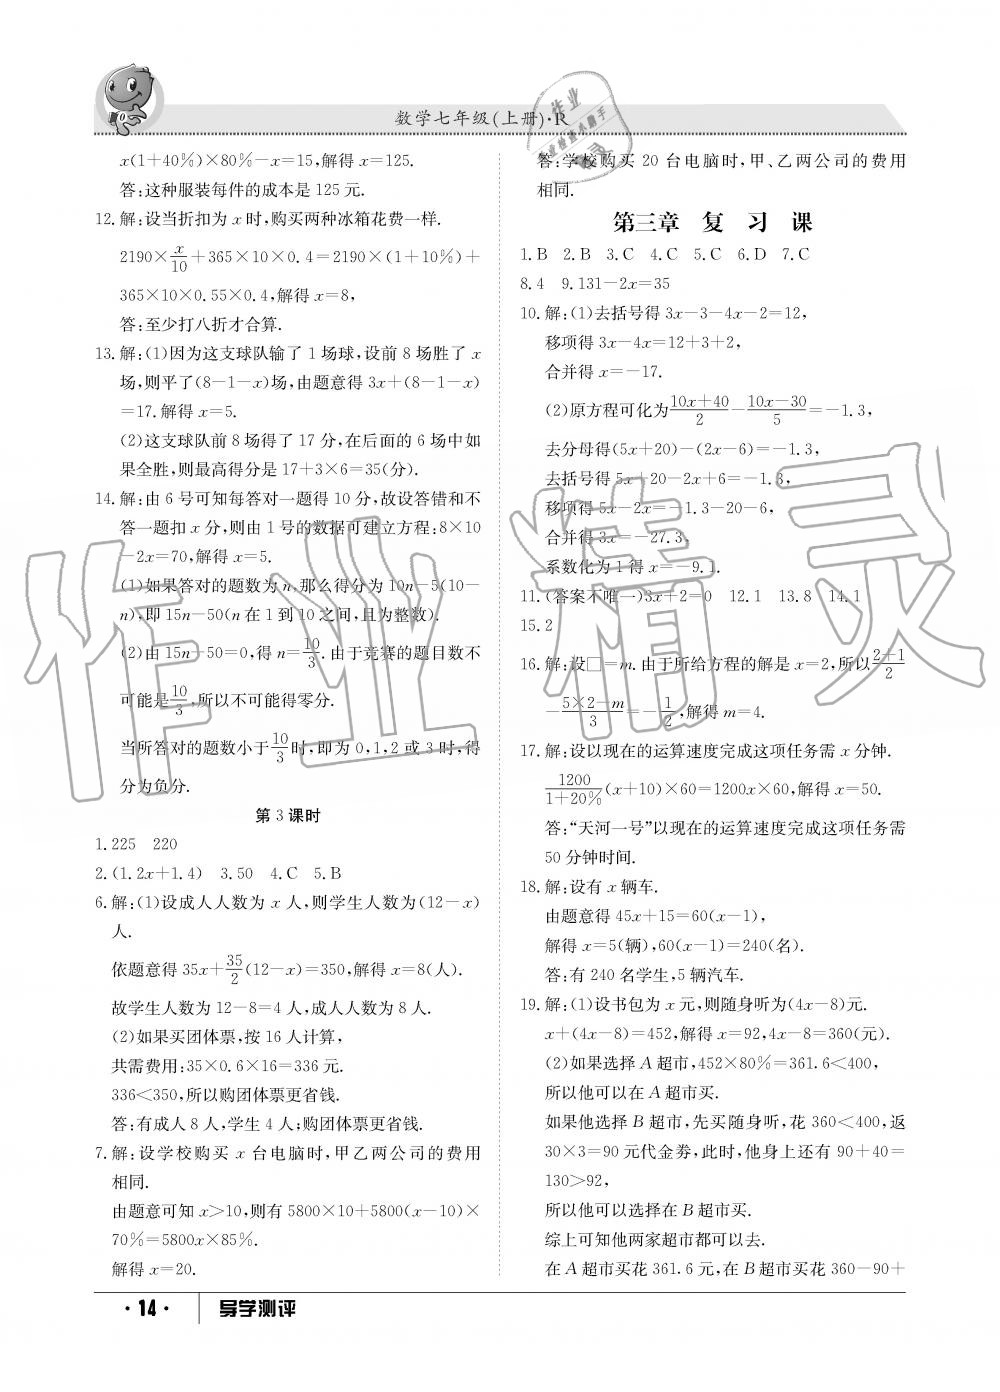 数学七年级(上册)·R
x(1+40%)×80%-x=15,解得 x=125.
答:这种服装每件的成本是 125 元.
12.解:设当折扣为 x 时,购买两种冰箱花费一样.
2190×x/10+365×10×0.4=2190×(1+10%)+
365×10×0.55×0.4,解得 x=8,
答:至少打八折才合算.
13.解:(1)因为这支球队输了 1 场球,设前 8 场胜了 x
场,则平了(8-1-x)场,由题意得 3x+(8-1-x)
=17.解得 x=5.
(2)这支球队前 8 场得了 17 分,在后面的 6 场中如
果全胜,则最高得分是 17+3×6=35(分).
14.解:由 6 号可知每答对一题得 10 分,故设答错和不
答一题扣 x 分,则由 1 号的数据可建立方程:8×10
-2x=70,解得 x=5.
(1)如果答对的题数为 n,那么得分为 10n-5(10-
n),即 15n-50(n 在 1 到 10 之间,且为整数).
(2)由 15n-50=0,得 n=10/3.由于竞赛的题目数不
可能是10/3,所以不可能得零分.
当所答对的题数小于10/3时,即为 0,1,2 或 3 时,得
分为负分.
第 3 课时
1.225 220
2.(1.2x+1.4) 3.50 4.C 5.B
6.解:(1)设成人人数为 x 人,则学生人数为(12-x)
人.
依题意得 35x+35/2(12-x)=350,解得 x=8(人).
故学生人数为 12-8=4 人,成人人数为 8 人.
(2)如果买团体票,按 16 人计算,
共需费用:35×0.6×16=336 元.
336<350,所以购团体票更省钱.
答:有成人 8 人,学生 4 人;购团体票更省钱.
7.解:设学校购买 x 台电脑时,甲乙两公司的费用
相同.
由题意可知 x>10,则有 5800×10+5800(x-10)×
70%=5800x×85%.
解得 x=20.
答:学校购买 20 台电脑时,甲、乙两公司的费用
相同.
第三章 复 习 课
1.B 2.B 3.C 4.C 5.C 6.D 7.C
8.4 9.131-2x=35
10.解:(1)去括号得 3x-3-4x-2=12,
移项得 3x-4x=12+3+2,
合并得 x=-17.
(2)原方程可化为10x+40/2-10x-30/5=-1.3,
去分母得(5x+20)-(2x-6)=-1.3,
去括号得 5x+20-2x+6=-1.3,
移项得 5x-2x=-1.3-20-6,
合并得 3x=-27.3,
系数化为 1 得 x=-9.1.
11.(答案不唯一)3x+2=0 12.1 13.8 14.1
15.2
16.解:设□=m.由于所给方程的解是 x=2,所以2-1/2
-5×2-m/3=-1/2,解得 m=4.
17.解:设以现在的运算速度完成这项任务需 x 分钟.
1200/1+20%(x+10)×60=1200x×60,解得 x=50.
答:“天河一号”以现在的运算速度完成这项任务需
50 分钟时间.
18.解:设有 x 辆车.
由题意得 45x+15=60(x-1),
解得 x=5(辆),60(x-1)=240(名).
答:有 240 名学生,5 辆汽车.
19.解:(1)设书包为 x 元,则随身听为(4x-8)元.
x+(4x-8)=452,解得 x=92,4x-8=360(元).
(2)如果选择 A 超市,452×80%=361.6<400,
所以他可以在 A 超市买.
如果他选择 B 超市,先买随身听,花 360<400,返
30×3=90 元代金券,此时,他身上还有 90+40=
130>92,
所以他可以选择在 B 超市买.
综上可知他两家超市都可以去.
在 A 超市买花 361.6 元,在 B 超市买花 360-90+
·14· 导学测评
作业精灵